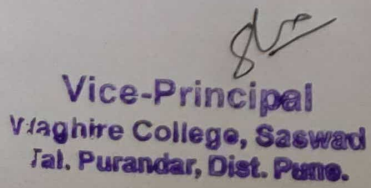 Vice-Principal
Waghire College, Saswad
Tal. Purandar, Dist. Pune.